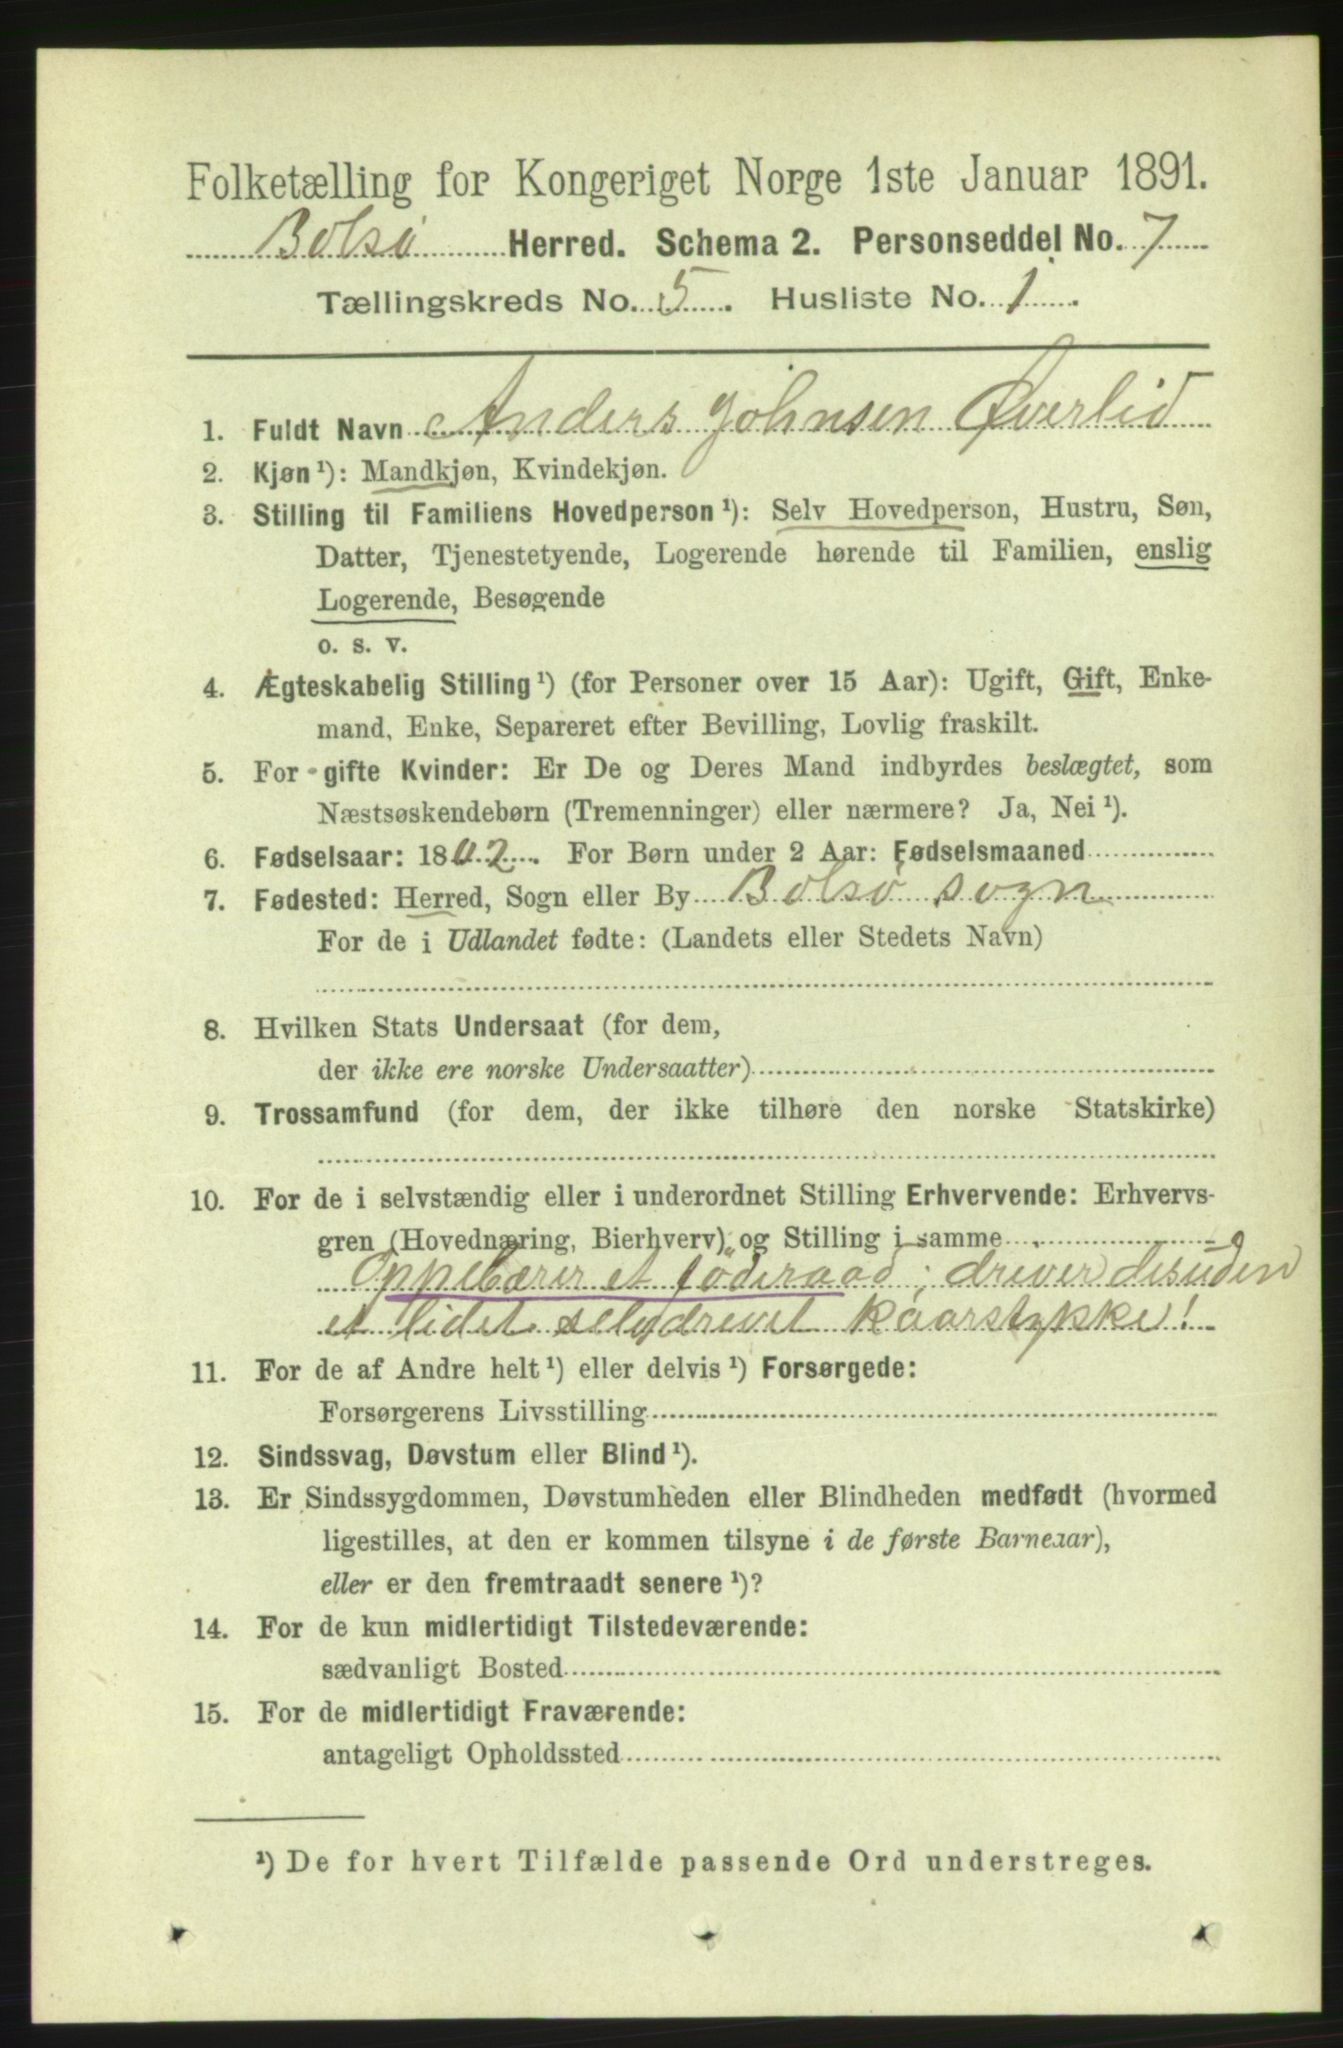 Folketælling for Kongeriget Norge 1ste Januar 1891.
Bolsø Herred. Schema 2. Personseddel No. 7
Tællingskreds No. 5. Husliste No. 1.
1. Fuldt Navn Anders Johnsen Øverlid
2. Kjøn¹): Mandkjøn, Kvindekjøn.
3. Stilling til Familiens Hovedperson¹): Selv Hovedperson, Hustru, Søn,
Datter, Tjenestetyende, Logerende hørende til Familien, enslig
Logerende, Besøgende
o. s. v.
4. Ægteskabelig Stilling¹) (for Personer over 15 Aar): Ugift, Gift, Enke-
mand, Enke, Separeret efter Bevilling, Lovlig fraskilt.
5. For gifte Kvinder: Er De og Deres Mand indbyrdes beslægtet, som
Næstsøskendebørn (Tremenninger) eller nærmere? Ja, Nei¹).
6. Fødselsaar: 1802. For Børn under 2 Aar: Fødselsmaaned
7. Fødested: Herred, Sogn eller By Bolsø sogn
For de i Udlandet fødte: (Landets eller Stedets Navn)
8. Hvilken Stats Undersaat (for dem,
der ikke ere norske Undersaatter)
9. Trossamfund (for dem, der ikke tilhøre den norske Statskirke)
10. For de i selvstændig eller i underordnet Stilling Erhvervende: Erhvervs-
gren (Hovednæring, Bierhverv) og Stilling i samme
Oppebærer et föderaad; driver desuden
et lidet selvdrevet kaarstykke!
11. For de af Andre helt¹) eller delvis¹) Forsørgede:
Forsørgerens Livsstilling
12. Sindssvag, Døvstum eller Blind¹).
13. Er Sindssygdommen, Døvstumheden eller Blindheden medfødt (hvormed
ligestilles, at den er kommen tilsyne i de første Barneaar),
eller er den fremtraadt senere¹)?
14. For de kun midlertidigt Tilstedeværende:
sædvanligt Bosted
15. For de midlertidigt Fraværende:
antageligt Opholdssted
¹) De for hvert Tilfælde passende Ord understreges.